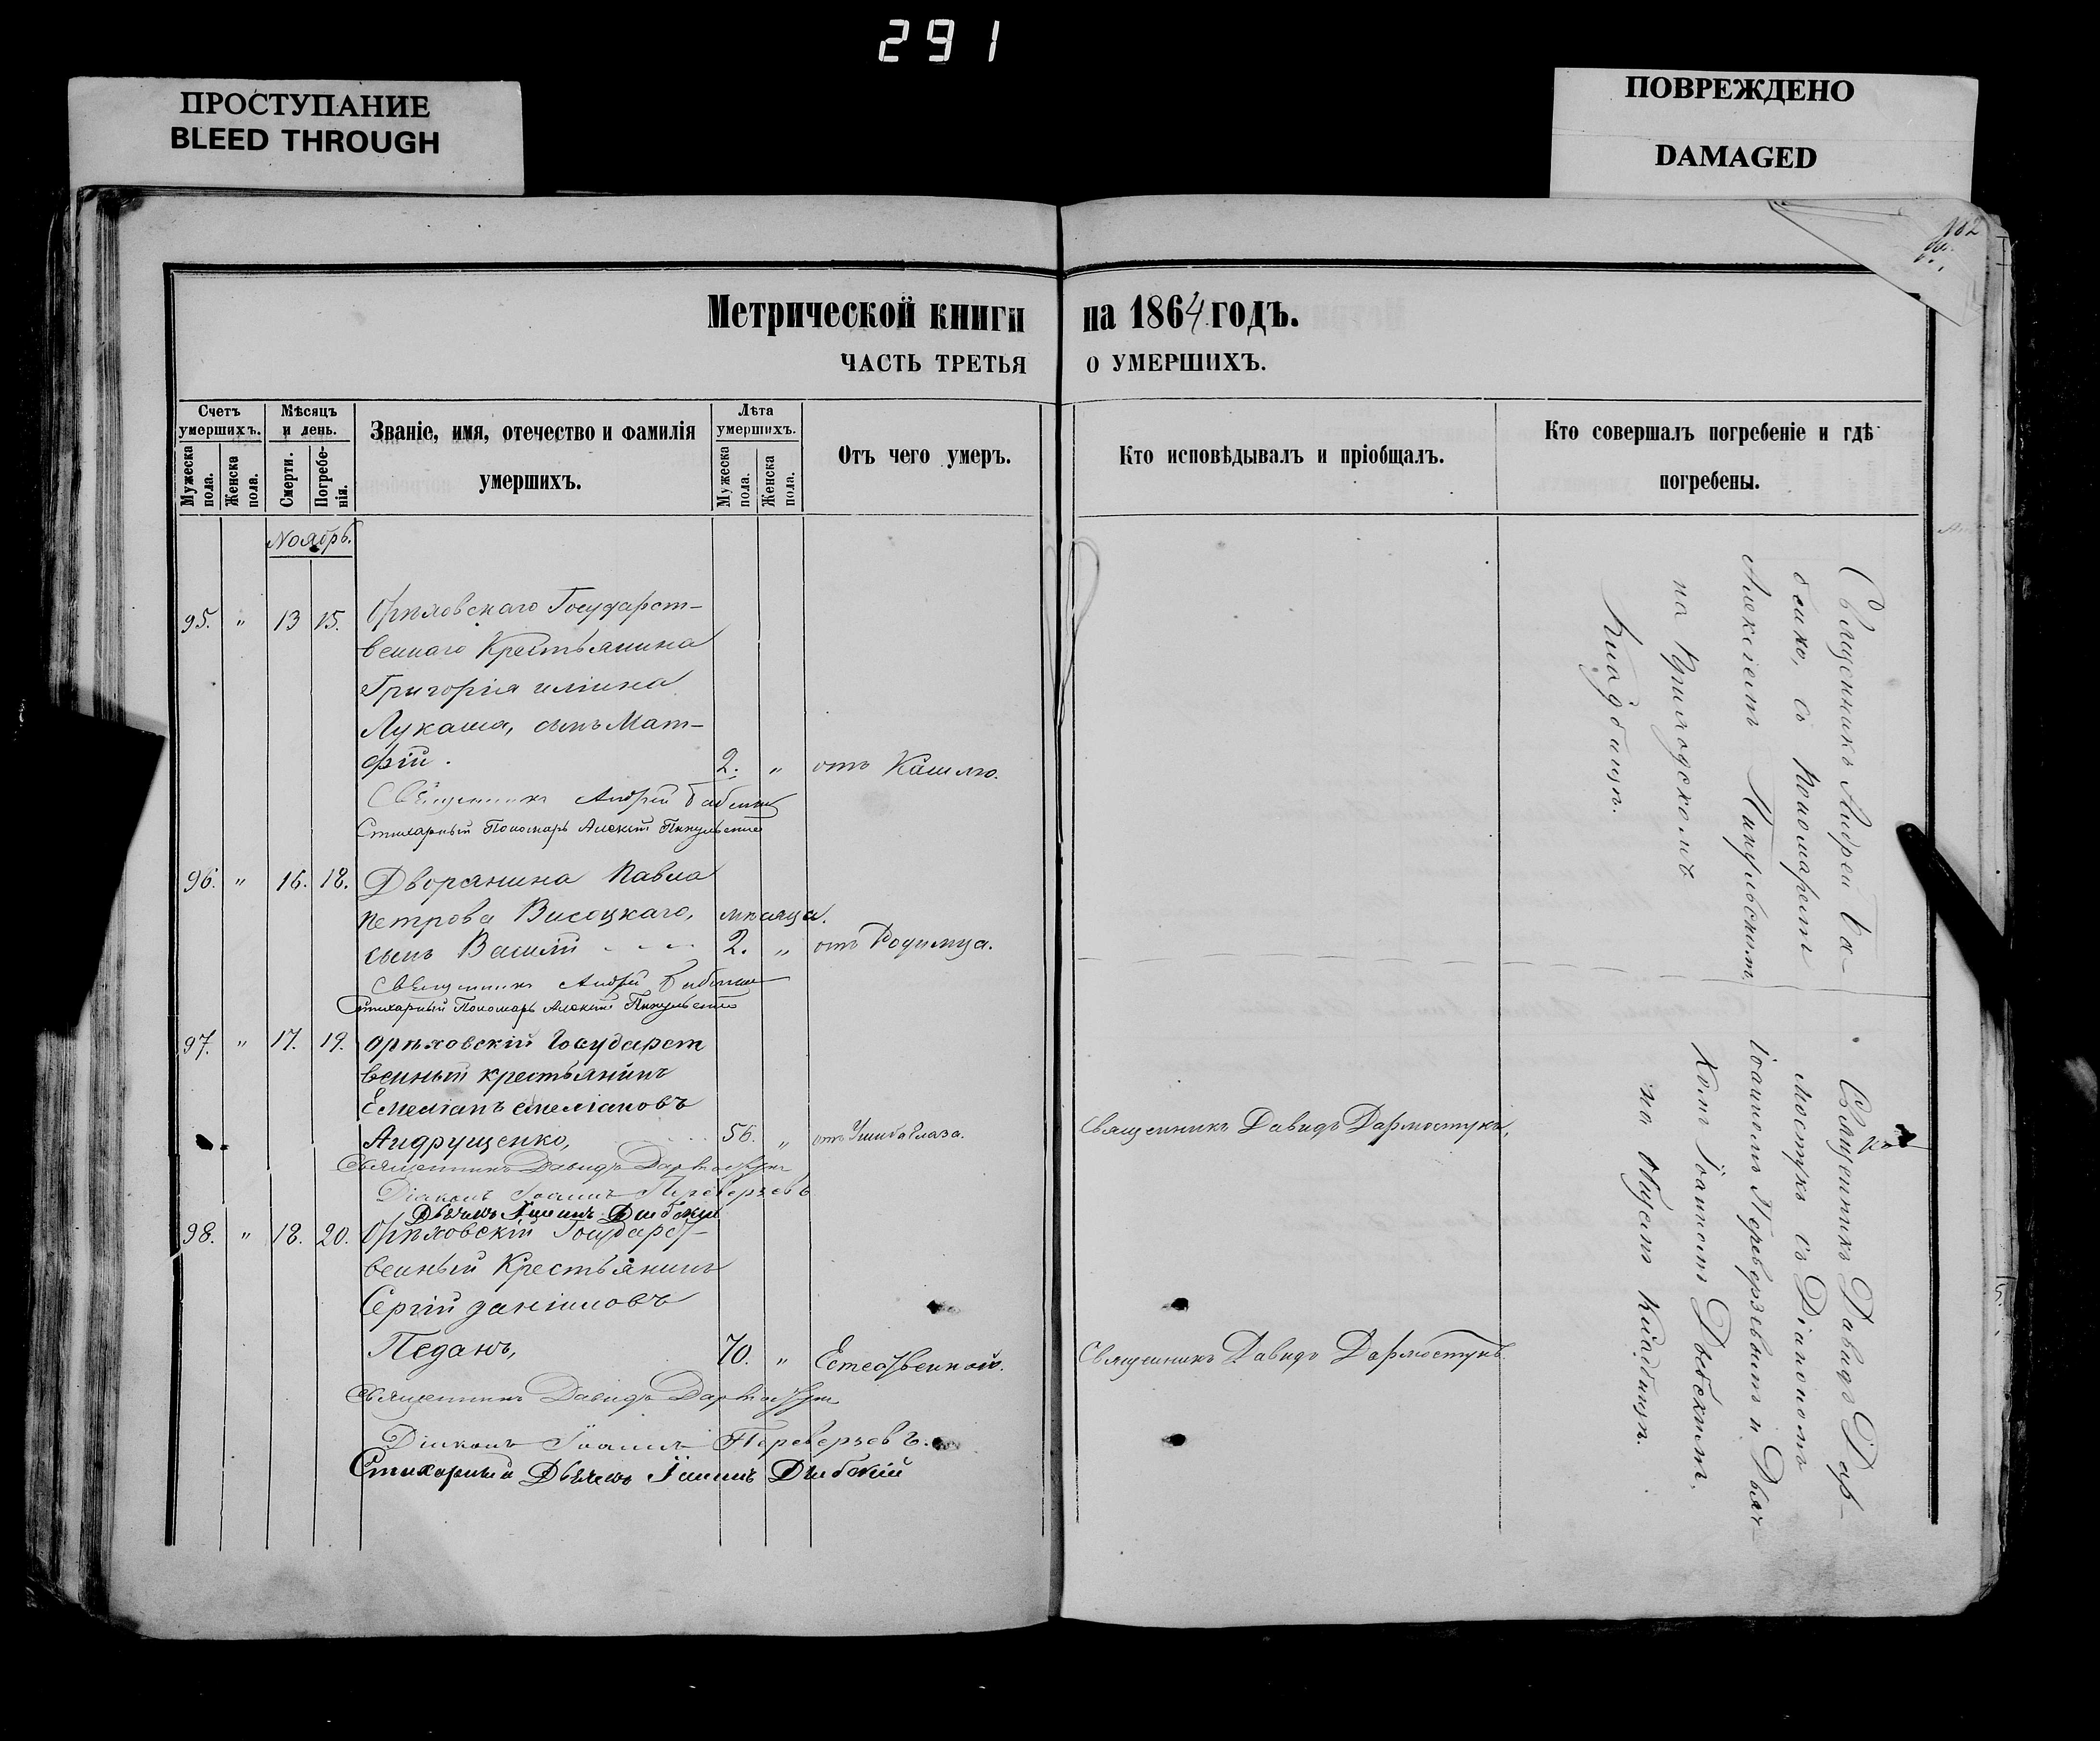 291
ПРОСТУПАНИЕ
BLEED THROUGH
ПОВРЕЖДЕНО
DAMAGED
182
Метрической книги на 1864 годъ.
ЧАСТЬ ТРЕТЬЯ О УМЕРШИХЪ.
Счетъ умершихъ.
Мужеска пола.
Женска пола.
Мѣсяцъ и день.
Смерти.
Погребенія.
Званіе, имя, отечество и фамилія умершихъ.
Лѣта умершихъ.
Мужеска пола.
Женска пола.
Отъ чего умеръ.
Кто исповѣдывалъ и пріобщалъ.
Кто совершалъ погребеніе и гдѣ погребены.
Ноябрь.
95. " 13 15. Орѣховскаго Государст-
веннаго Крестьянина
Григорія
Лукаша, сынъ Мат-
фій. 2. " отъ Кашлю.
Священникъ Андрей Бабенко
Стихарный Пономарь Алексій Пикульскій
96. " 16. 18. Дворянина Павла
Петрова Висоцкаго, мѣсяца.
сынъ Василій 2. " отъ Родимца.
Священникъ Андрей Бабенко
Стихарный Пономарь Алексій Пикульскій
97. " 17. 19. Орѣховскій Государст
венный крестьянинъ
Емеліанъ Емеліановъ
Андрущенко, 56. " отъ Ушиба Глаза. Священникъ Давидъ Дармостукъ,
Священникъ Давидъ Дармостукъ
Діаконъ Іоаннъ Переверзевъ
Дьячекъ Іоаннъ
98. " 18. 20. Орѣховскій Государст-
венный Крестьянинъ
Сергій Даніиловъ
Педанъ, 70. " Естественной. Священникъ Давидъ Дармостукъ.
Священникъ Давидъ Дармостукъ
Діаконъ Іоаннъ Переверзевъ.
Стихарный Дьячекъ Іоаннъ
Священникъ Андрей Ба-
бенко, съ Пономаремъ
Алексіемъ Пикульскимъ
на Приходскомъ
Кладбищѣ.
Священникъ Давидъ Дар-
мостукъ съ Діакономъ
Іоанномъ Переверзевымъ и Дьяч-
комъ Іоанномъ
на общемъ Кладбищѣ.